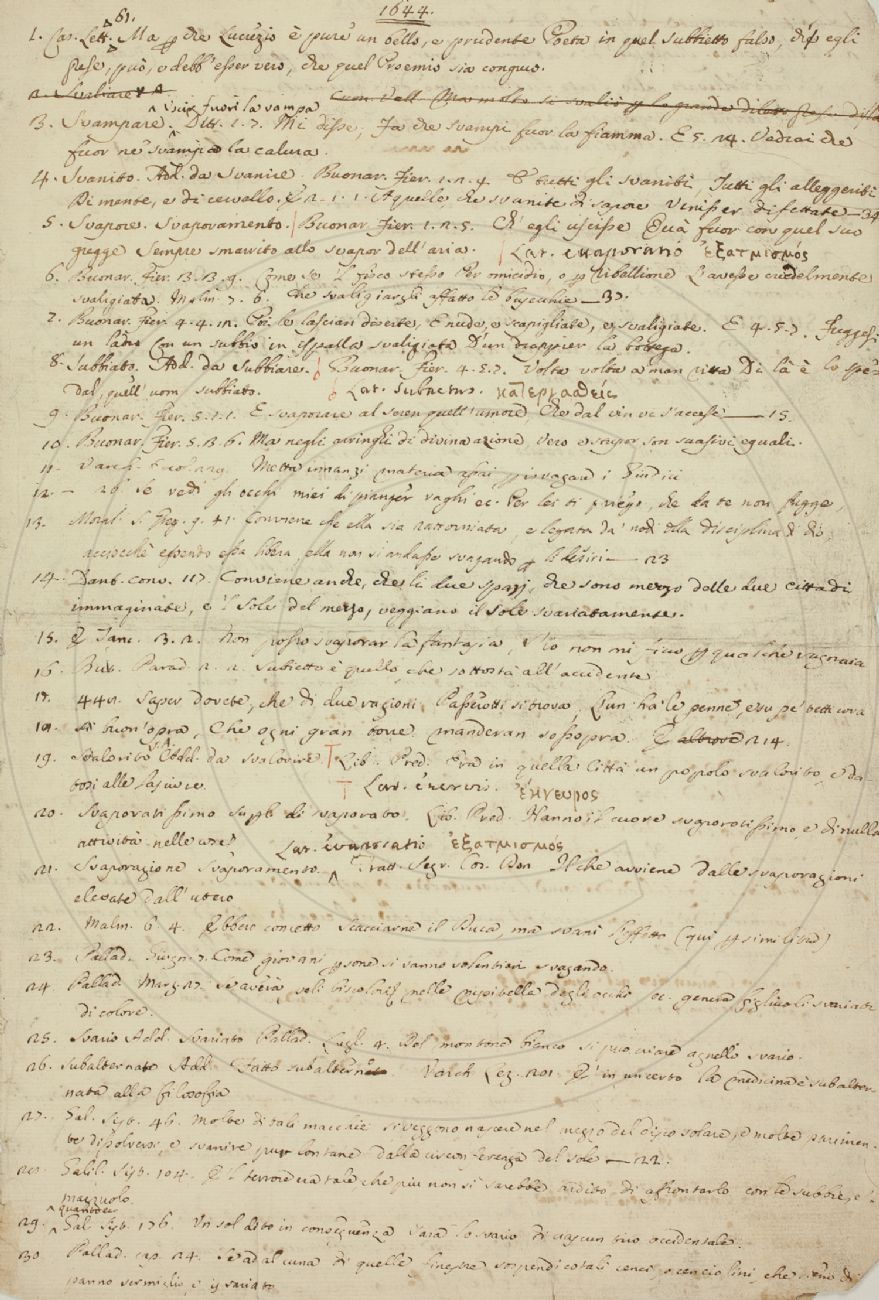 1644.
61.
1. Car. Lett. Ma che Lucrezio è pure un bello, e prudente Poeta in quel subbietto falso, egli
prese, può, e debb'esser vero, che quel Proemio sia congruo.
2. Svaliare
Uscir fuori la vampa
3. Svampare. Ditt. 1. 7. Mi disse, Fa che svampi fuor la fiamma. E 5. 24. Vedrai che
fuor ne svampa la calura.
4. Svanito. Add. da Svanire. Buonar. Fier. 1. 2. 4. E tutti gli svaniti, Tutti gli alleggeriti
Di mente, e di cervello. E 2. 1. 1. A quelle che svanite di sapore Venisser difettate — 34
5. Svapore. Svaporamento. Buonar. Fier. 1. 2. 5. Ch' egli uscisse Qua fuor con quel suo
gugge sempre smarrito allo svapor dell'aria. Lat. evaporatio ἐξατμισμός
6. Buonar. Fier. 3. 3. 9. Come se 'l fisco stesso Per micidio, o ribellione L'avesse crudelmente
svaligiata. Malm. 7. 6. Che svaligiargli affatto le bisacchie — 37.
7. Buonar. Fier. 4. 4. 12. Poi le lasciari diserte, E nude, e scapigliate, e svaligiate. E 4. 5. 7. Fuggesi
un ladro Con un subbio in ispalla svaligiata D'un drappier la bottega.
8. Subbiato. Add. da Subbiare. Buonar. Fier. 4. 5. 7. Volta volta a man ritta Di là è lo
Dal, quell' uom subbiato. Lat. κατεργασθείς
9. Buonar. Fier. 5. 1. 1. E svaporare al seren quell'umore Che dal vin vi s'accese — 15.
10. Buonar. Fier. 5. 3. 6. Ma negli aringhi di divina azione, Vero e stupor son suasivi eguali.
11. Varch. Metta innanzi materia svagando i Giudici
12. — 26. Se vedi gli occhi miei di pianger vaghi ec. Per lei ti priego, che da te non fugge,
13. Moral. S. Greg. 9. 41. Conviene che ella sia rattorniata, e legata da' nodi della disciplina di Dio,
acciocchè essendo essa libera, ella non si andasse svagando le desiri — 23
14. Dant. Conv. 117. Conviene anche, che li due spazj, che sono mezzo delle due cittadi
immaginate, e 'l Sole del mezzo, veggiano il Sole svariatamente.
15. E Canc. 3. 2. Non posso svaporar la fantasia, S'io non mi ficco qualche
16. But. Parad. 2. 2. Subietto è quello, che sottostà all'accidente
17. 442. Saper dovete, che di due ragioni Passerotti si trova, L'un ha le penne,
18. di buon'opra, Che ogni gran torre manderan sossopra. E 214.
19. Svalorito. Add. da svalorire. Lib. Pred. Era in quella Città un popolo svalorito, e da-
tosi alle lascivie. Lat. enervis. ἔκνευρος
20. Svaporatissimo superl. di svaporato. Lib. Pred. Hanno il cuore svaporatissimo, e di nulla
attività nelle cose Lat. evaporatio ἐξατμισμός
21. Svaporazione Svaporamento. Tratt. Segr. Cos. Don. Il che avviene dalle svaporazioni
elevate dall'utero
22. Malm. 6. 4. Ebbero concetto scacciarne il Duca, ma svanì l'effetto (qui similitud)
23. Pallad. Giugn. 7. Come giovani persone si vanno volentieri svagando.
24 Pallad. Marz. 27. Se averà peli biscolori nelle nepitelle degli occhi ec. genera figliuoli svariati
di colore.
25. Svario Add. Svariato Pallad. Lugl. 4. Del montone bianco si può criare agnello svario.
26. Subalternato Add. Fatto subalterno. Varch. Lez. 201. E' in un certo la medicina è subalter-
nata alla filosofia
27. Gal. Sist. 46. Molte di tali macchie si veggono nascere nel mezzo del disco solare, e molte parimen-
te dissolversi, e svanire pur lontane dalla circonferenza del sole — 22.
28. Galil. Sist. 104. E 'l terrore era tale che più non si sarebbe ardito di affrontarlo con le subbie, e 'l
mazzuolo.
quanto è
29. Gal. Sist. 176. Un sol dito in conseguenza sarà lo svario di ciascun tiro occidentale.
30 Pallad. cap. 24. Se ad alcuna di quelle finestre sospendi cotali cenci o cenciolini, che sieno di
panno vermiglio, e svariato